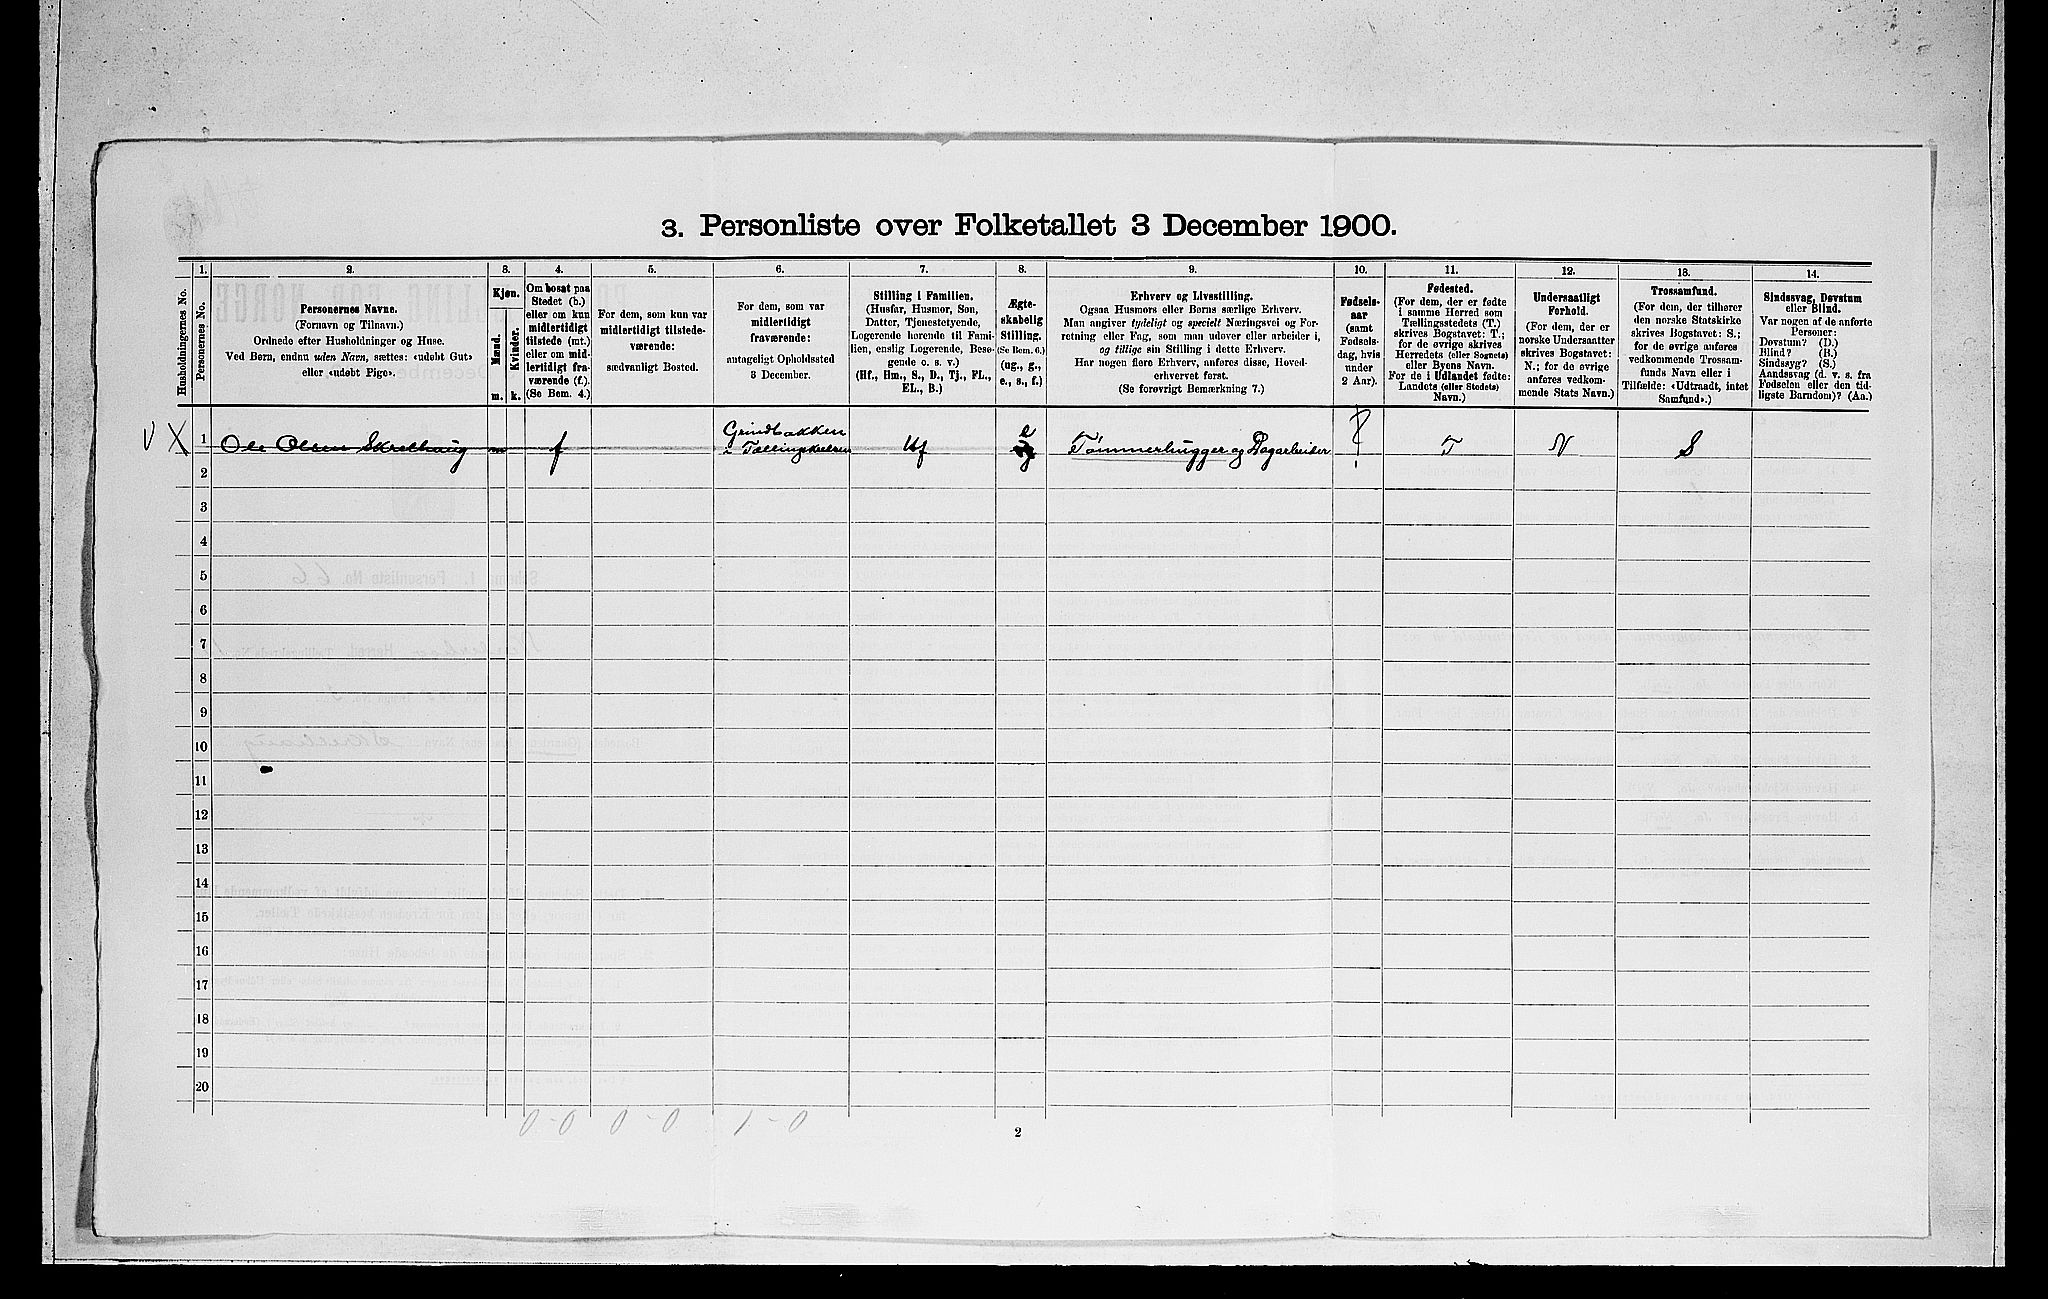 3. Personliste over Folketallet 3 December 1900.
Husholdningernes No.
1.
Personernes No.
2.
Personernes Navne.
(Fornavn og Tilnavn.)
Ordnede efter Husholdninger og Huse.
Ved Børn, endnu uden Navn, sættes: «udøbt Gut»
eller «udøbt Pige».
3.
Kjøn.
Mænd.
Kvinder.
m. k.
4.
Om bosat paa
Stedet (b.)
eller om kun
midlertidigt
tilstede (mt.)
eller om mid-
lertidigt fra-
værende (f.).
(Se Bem. 4.)
5.
For dem, som kun var
midlertidigt tilstede-
værende:
sædvanligt Bosted.
6.
For dem, som var
midlertidigt
fraværende:
antageligt Opholdssted
3 December.
7.
Stilling i Familien.
(Husfar, Husmor, Søn,
Datter, Tjenestetyende,
Logerende hørende til Fami-
lien, enslig Logerende, Besø-
gende o. s. v.)
(Hf., Hm., S., D., Tj., FL.,
EL., B.)
8.
Ægte-
skabelig
Stilling.
(Se Bem. 6.)
(ug., g.,
e., s., f.)
9.
Erhverv og Livsstilling.
Ogsaa Husmors eller Børns særlige Erhverv.
Man angiver tydeligt og specielt Næringsvei og For-
retning eller Fag, som man udøver eller arbeider i,
og tillige sin Stilling i dette Erhverv.
Har nogen flere Erhverv, anføres disse, Hoved-
erhvervet først.
(Se forøvrigt Bemærkning 7.)
10.
Fødsels-
aar
(samt
Fødsels-
dag, hvis
under
2 Aar).
11.
Fødested.
(For dem, der er fødte
i samme Herred som
Tællingsstedets (T.)
skrives Bogstavet: T.;
for de øvrige skrives
Herredets (eller Sognets)
eller Byens Navn.
For de i Udlandet fødte:
Landets (eller Stedets)
Navn.)
12.
Undersaatligt
Forhold.
(For dem, der er
norske Undersaatter
skrives Bogstavet:
N.; for de øvrige
anføres vedkom-
mende Stats Navn.)
13.
Trossamfund.
(For dem, der tilhører
den norske Statskirke
skrives Bogstavet: S.;
for de øvrige anføres
vedkommende Trossam-
funds Navn eller i
Tilfælde: «Udtraadt, intet
Samfund».)
14.
Sindssvag, Døvstum
eller Blind.
Var nogen af de anførte
Personer:
Døvstum? (D.)
Blind? (B.)
Sindssyg? (S.)
Aandssvag (d. v. s. fra
Fødselen eller den tid-
ligste Barndom)? (Aa.)
V X 1 Ole Olsen Skrelhaug m f Grindbakken
i Tællingskredsen Hf e Tømmerhugger og Dagarbeider ? T N S
2
3
4
5
6
7
8
9
10
11
12
13
14
15
16
17
18
19
20
0-0 0-0 1-0
2